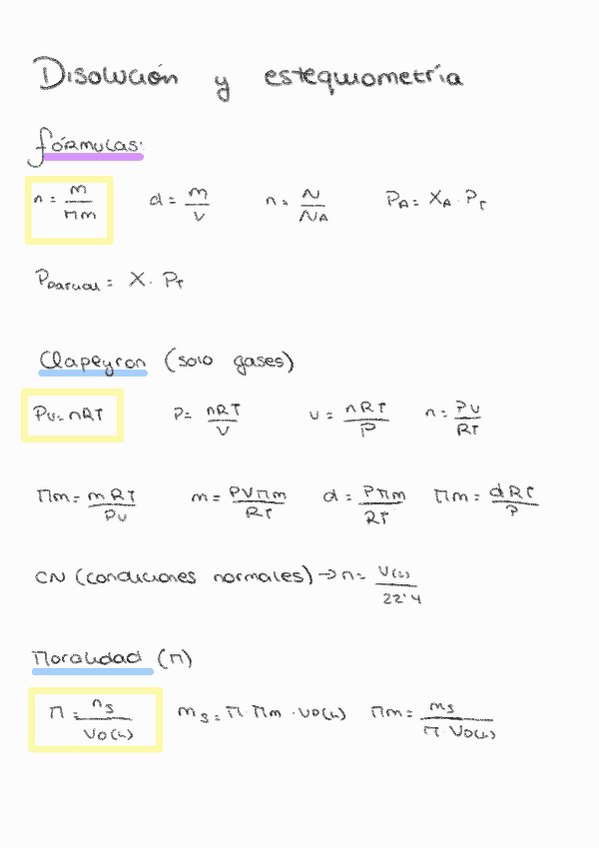 Disolución y estequiometría
fórmulas:
n = m/Mm d = m/v n = N/NA PA = XA · PT
Pparcial = X · PT
Clapeyron (solo gases)
Pv = nRT P = nRT/V v = nRT/P n = PV/RT
Mm = mRT/PV m = PVMm/RT d = PMm/RT Mm = dRT/P
CN (condiciones normales) → n = V(L)/22'4
Moralidad (M)
M = ns/VD(L) ms = M · Mm · VD(L) Mm = ms/M · VD(L)